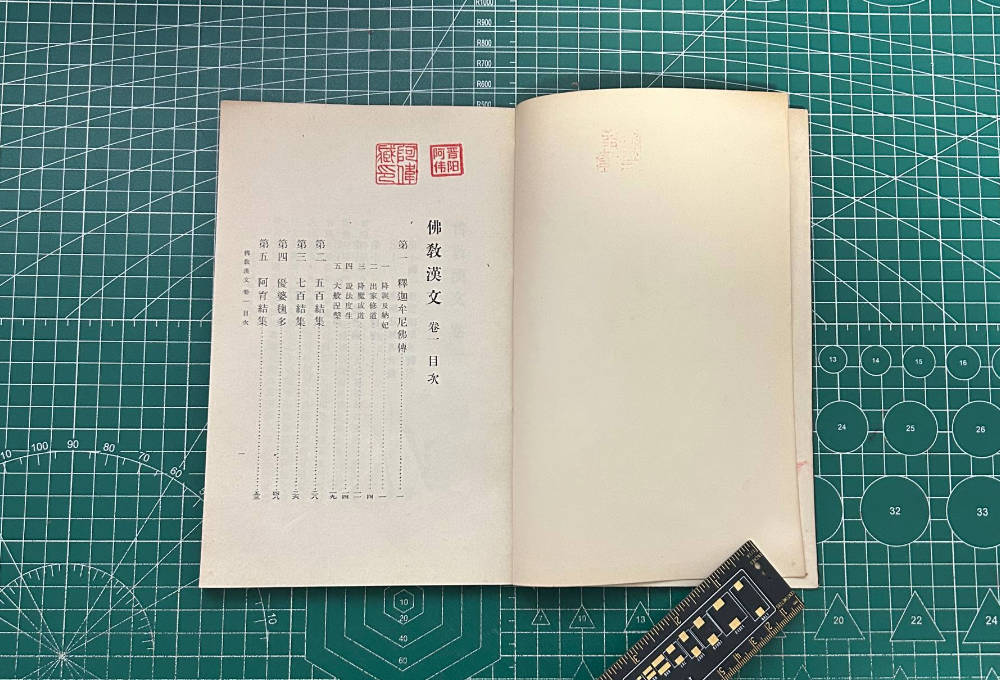 晋阳
阿伟
阿偉
藏印
佛教漢文 卷一 目次
第一 釋迦牟尼佛傳……一
一 降誕及納妃……一
二 出家修道……四
三 降魔成道……一一
四 說法度生……一四
五 大般涅槃……一九
第二 五百結集
第三 七百結集……三六
第四 優婆毱多……四八
第五 阿育結集……五三
佛教漢文 卷一 目次
一
R1000
R900
R800
R700
R600
R500
100
90
80
70
60
13
14
15
16
24
25
26
32
33
10
20
40
60
10
7
10
13
20
22
24